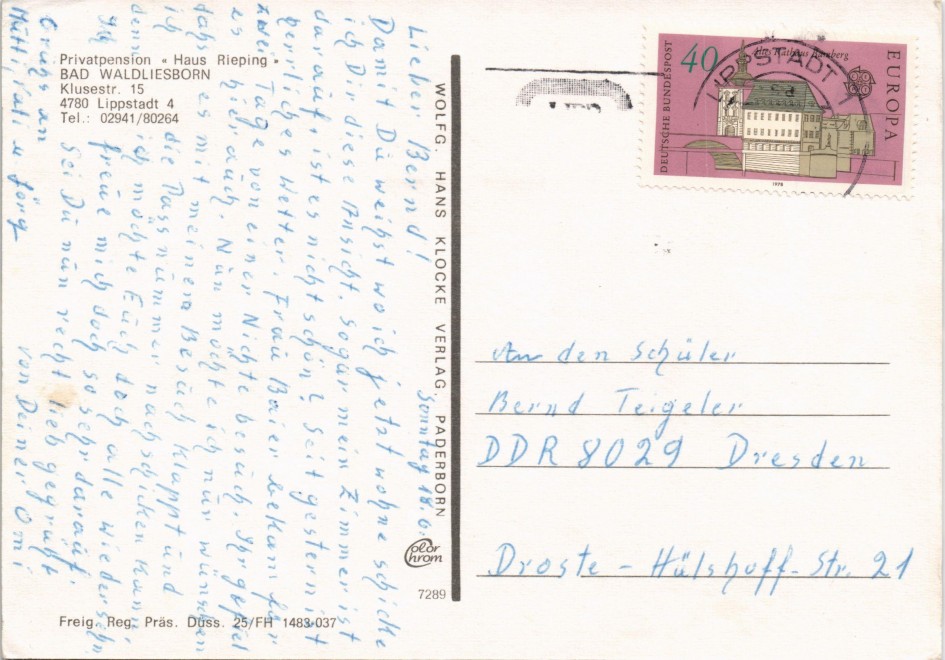 Privatpension « Haus Rieping »
BAD WALDLIESBORN
Klusestr. 15
4780 Lippstadt 4
Tel.: 02941/80264
Sonntag 18.6.
Lieber Bernd!
Damit Du weißt wo ich jetzt wohne schicke
ich Dir diese Ansicht, sogar mein Zimmer ist
darauf, ist es nicht schön? Seit gestern ist
herrliches Wetter. Frau Baier bekam für
zwei Tage von einer Nichte besuch. Ihr gefiel
es hier auch. Nun möchte ich nur wünschen
dahs es mit meinem Besuch klappt und
ich die Passnummer nachschicken kann
denn ich möchte Euch doch alle wiedersehn
Ich freue mich doch so sehr darauf.
Sei Du nun recht lieb gegrüßt
von Deiner Omi
Gruhs an
Mutti, Vati u Jörg
WOLFG. HANS KLOCKE VERLAG, PADERBORN
Color
chrom
7289
Freig. Reg. Präs. Düss. 25/FH 1483-037
DEUTSCHE BUNDESPOST
40
Altes Rathaus Bamberg
EUROPA
1978
LIPPSTADT
An den Schüler
Bernd Teigeler
DDR 8029 Dresden
Droste - Hülshoff-Str. 21